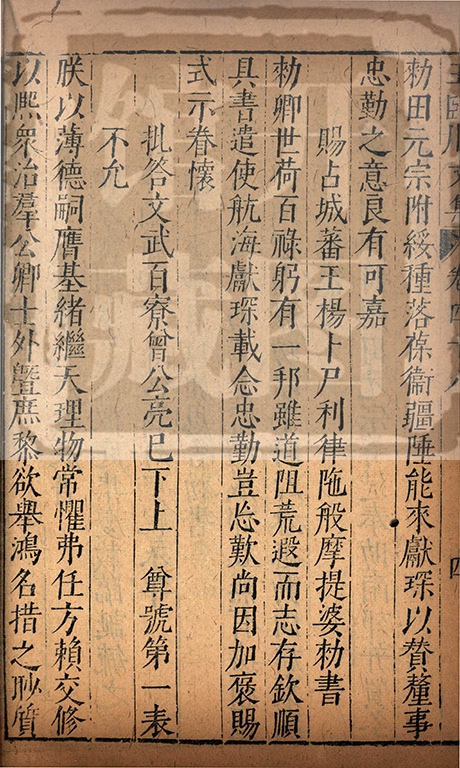 勑田元宗附綏種落葆衞疆陲能來獻琛以賛釐事
忠勤之意良有可嘉
賜占城蕃王楊卜尸利律陁般摩提婆勑書
勑卿世荷百祿躬有一邦雖道阻荒遐而志存欽順
具書遣使航海獻琛載念忠勤豈忘歎尚因加褒賜
式示眷懷
批答文武百寮曾公亮已下上　尊號第一表
不允
朕以薄德嗣膺基緒繼天理物常懼弗任方賴交修
以熙衆治羣公卿士外曁庶黎欲舉鴻名措之眇質